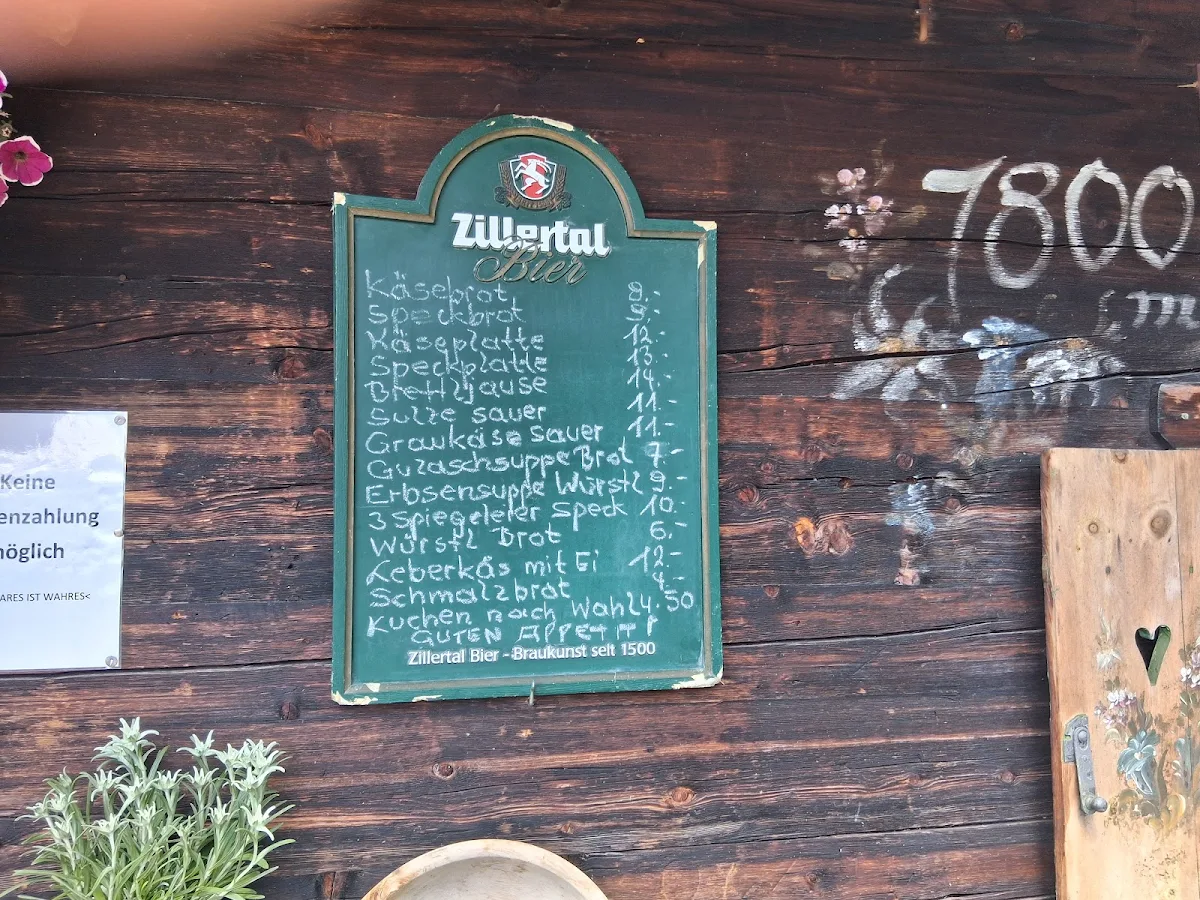 Zillertal
Bier
Käsebrot 9.-
Speckbrot 9.-
Käseplatte 12.-
Speckplatte 13.-
Brettljause 14.-
Sulze sauer 11.-
Graukäse sauer 11.-
Gulaschsuppe Brot 7.-
Erbsensuppe Würstl 9.-
3 Spiegeleier Speck 10.-
Würstl Brot 6.-
Leberkäs mit Ei 12.-
Schmalzbrot 4.-
Kuchen nach Wahl 4.50
GUTEN APPETIT!
Zillertal Bier - Braukunst seit 1500
Keine
enzahlung
möglich
ARES IST WAHRES<
1800
m